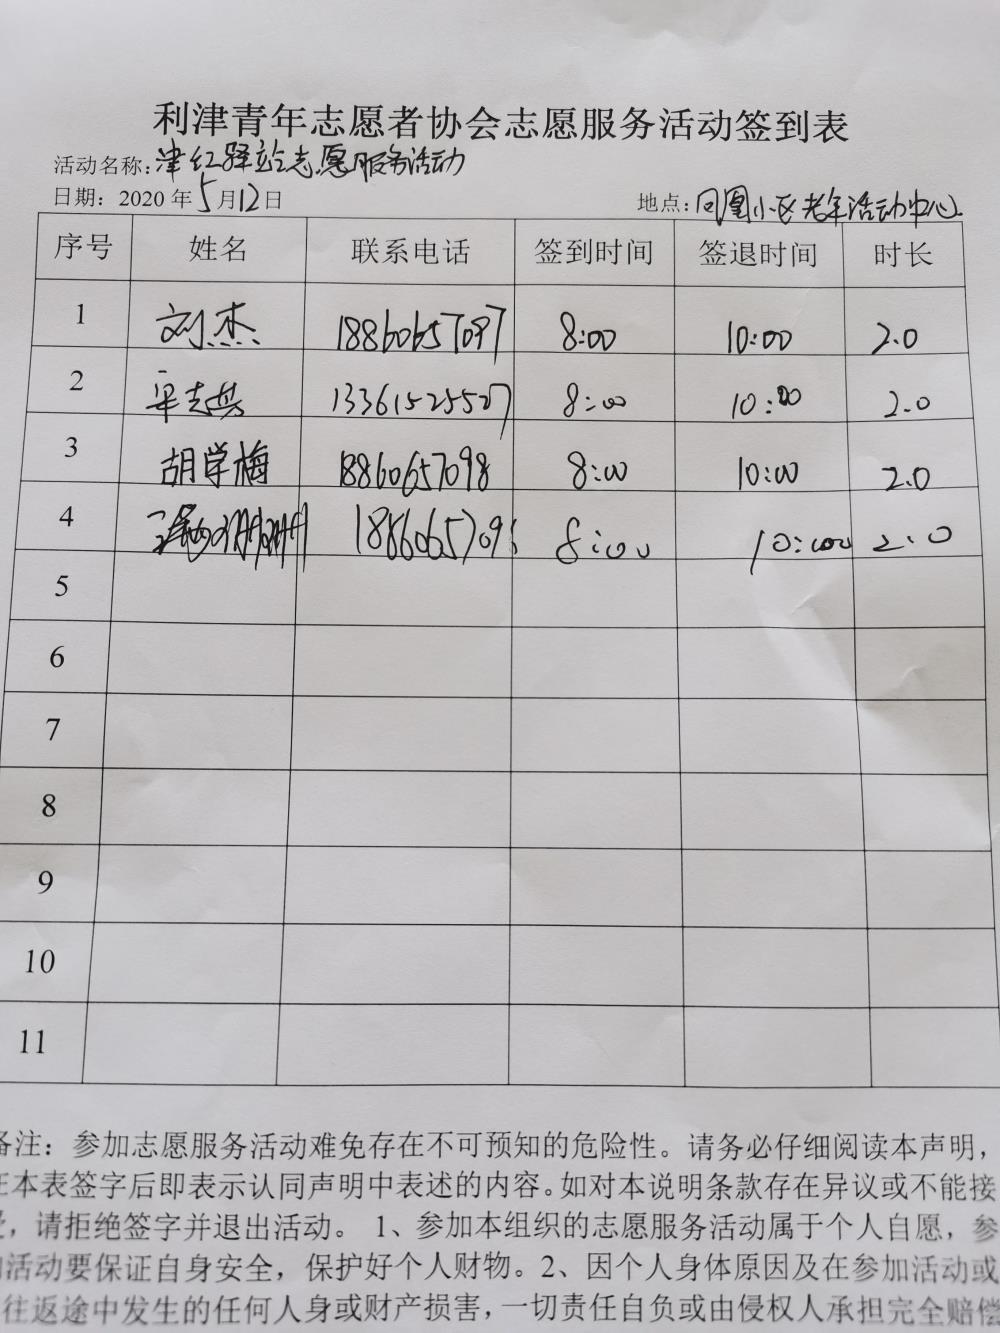 利津青年志愿者协会志愿服务活动签到表
活动名称:津红驿站志愿服务活动
日期:2020年5月12日 地点:凤凰小区老年活动中心
序号 姓名 联系电话 签到时间 签退时间 时长
1 刘杰 18860657097 8:00 10:00 2.0
2 13361525527 8:00 10:00 2.0
3 胡学梅 18860657098 8:00 10:00 2.0
4 8:00 10:00 2.0
5
6
7
8
9
10
11
备注：参加志愿服务活动难免存在不可预知的危险性。请务必仔细阅读本声明，
在本表签字后即表示认同声明中表述的内容。如对本说明条款存在异议或不能接
受，请拒绝签字并退出活动。 1、参加本组织的志愿服务活动属于个人自愿，参
加活动要保证自身安全，保护好个人财物。2、因个人身体原因及在参加活动或
往返途中发生的任何人身或财产损害，一切责任自负或由侵权人承担完全赔偿